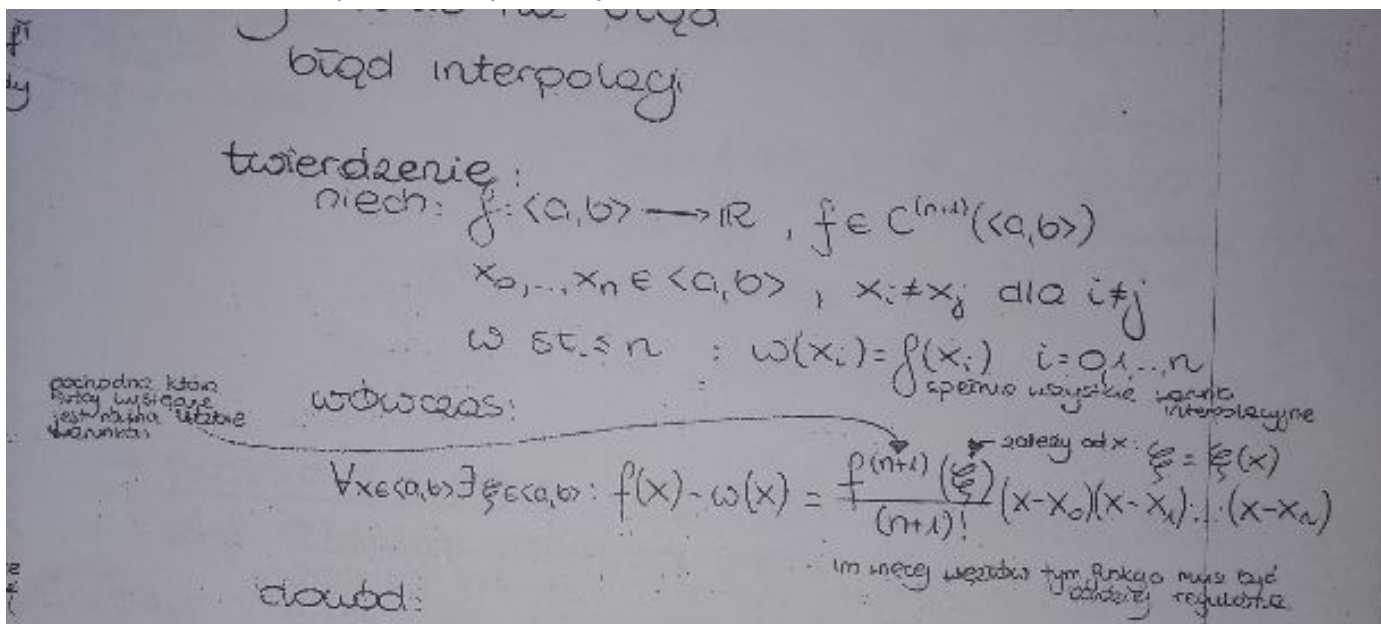 błąd interpolacji
twierdzenie:
niech: f: <a,b> → ℝ , f ∈ C⁽ⁿ⁺¹⁾(<a,b>)
x₀,...,xₙ ∈ <a,b> , xᵢ ≠ xⱼ dla i≠j
w st. ≤ n : w(xᵢ) = f(xᵢ) i = 0,1...n
spełnia wszystkie warunki
interpolacyjne
pochodna która
jest równa liczbie
warunków
wówczas:
zależy od x: ξ = ξ(x)
∀x∈<a,b> ∃ ξ∈<a,b>: f(x) - w(x) = f⁽ⁿ⁺¹⁾(ξ) / (n+1)! (x-x₀)(x-x₁)...(x-xₙ)
im więcej węzłów tym funkcja musi być
bardziej regularna
dowód: